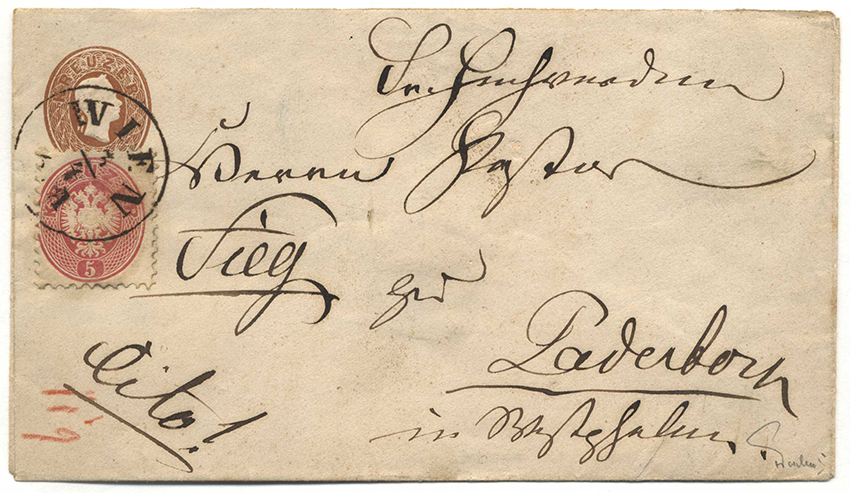 KREUZER
WIEN
5
Sr. Hochwürden
Herrn Pastor
Fieg
zu
Paderborn
in Westphalen
Cito!